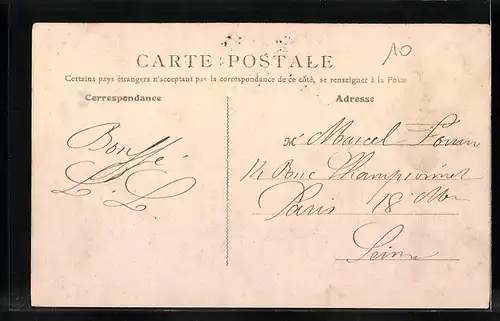 10
CARTE POSTALE
Certains pays étrangers n'acceptant pas la correspondance de ce côté, se renseigner à la Poste
Correspondance
Adresse
Bouffé
L. L
Mr Marcel
14 Rue Championnet
Paris 18e
Seine